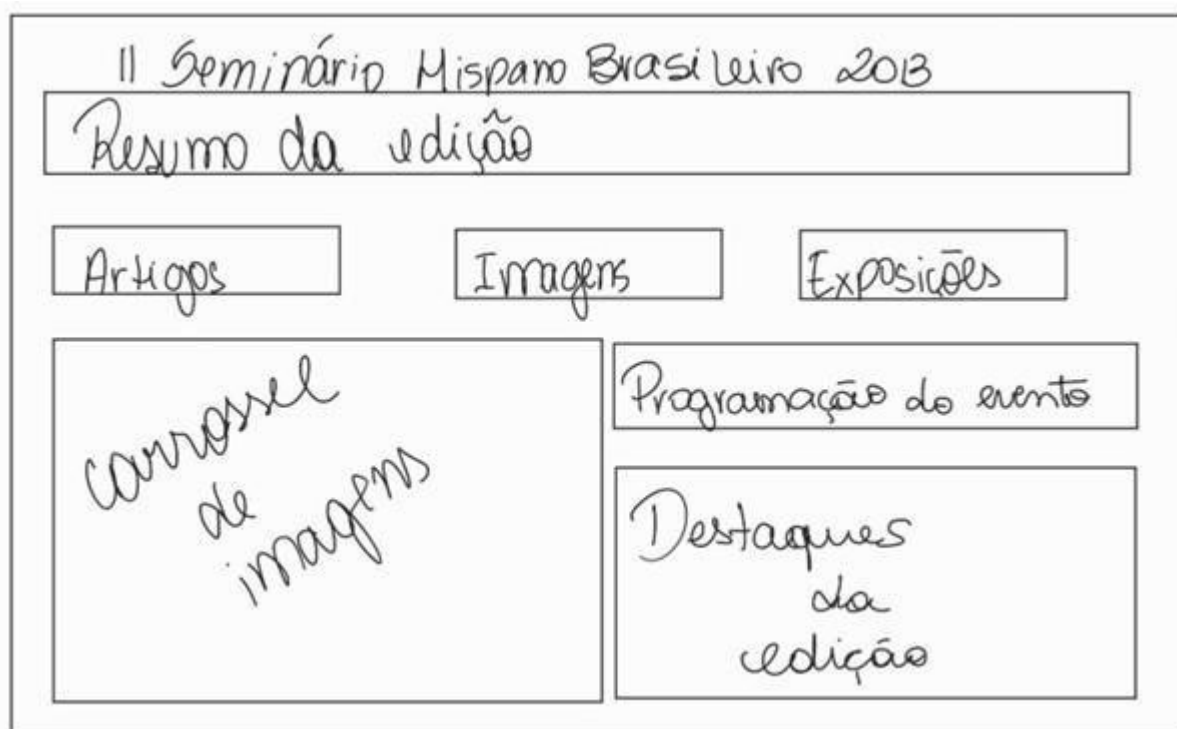 II Seminário Hispano Brasileiro 2013
Resumo da edição
Artigos
Imagens
Exposições
carrossel
de
imagens
Programação do evento
Destaques
da
edição